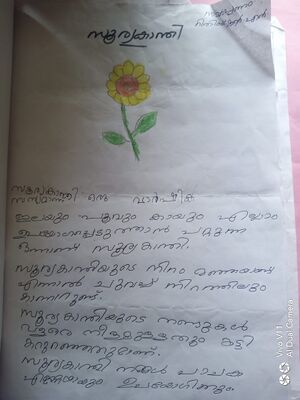 സൂര്യകാന്തി
സൂര്യകാന്തി ഒരു വാർഷിക
സസ്യമാണ്
ഇലയും പൂവും കായും എല്ലാം
ഉപയോഗപ്പെടുത്താൻ പറ്റുന്ന
ഒന്നാണ് സൂര്യകാന്തി.
സൂര്യകാന്തിയുടെ നിറം മഞ്ഞയാണ്
എന്നാൽ ചുവപ്പ് നിറത്തിലും
കാണാറുണ്ട്.
സൂര്യകാന്തിയുടെ തണ്ടുകൾ
വളരെ നീളമുള്ളതും കട്ടി
കുറഞ്ഞതുമാണ്.
സൂര്യകാന്തി നമ്മൾ പാചക
എണ്ണയായും ഉപയോഗിക്കും.
Vivo V11
AI Dual Camera